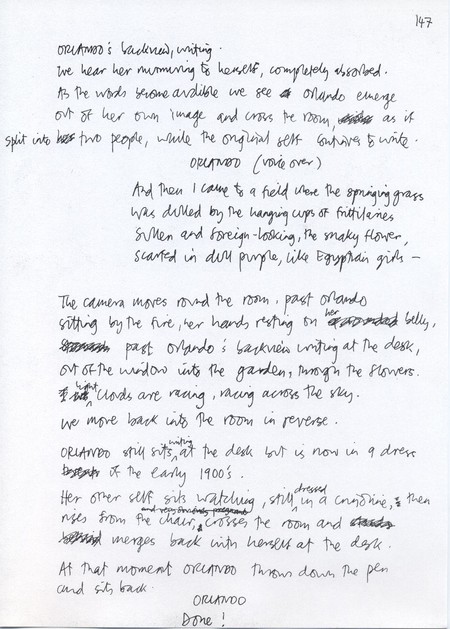 147
ORLANDO's backview, writing.
We hear her murmuring to herself, completely absorbed.
As the words become audible we see Orlando emerge
out of her own image and cross the room, as if
split into two people, while the original self continues to write.
ORLANDO (voice over)
And then I came to a field where the springing grass
Was dulled by the hanging cups of fritillaries
Sullen and foreign-looking, the snaky flower,
Scarfed in dull purple, like Egyptian girls —
The camera moves round the room, past Orlando
sitting by the fire, her hands resting on her belly,
past Orlando's backview writing at the desk,
out of the window into the garden, through the flowers.
light clouds are racing, racing across the sky.
We move back into the room in reverse.
ORLANDO still sits writing at the desk but is now in a dress
of the early 1900's.
Her other self sits watching, still dressed in a crinoline, then
rises from the chair, crosses the room and
merges back with herself at the desk.
At that moment ORLANDO throws down the pen
and sits back.
ORLANDO
Done!